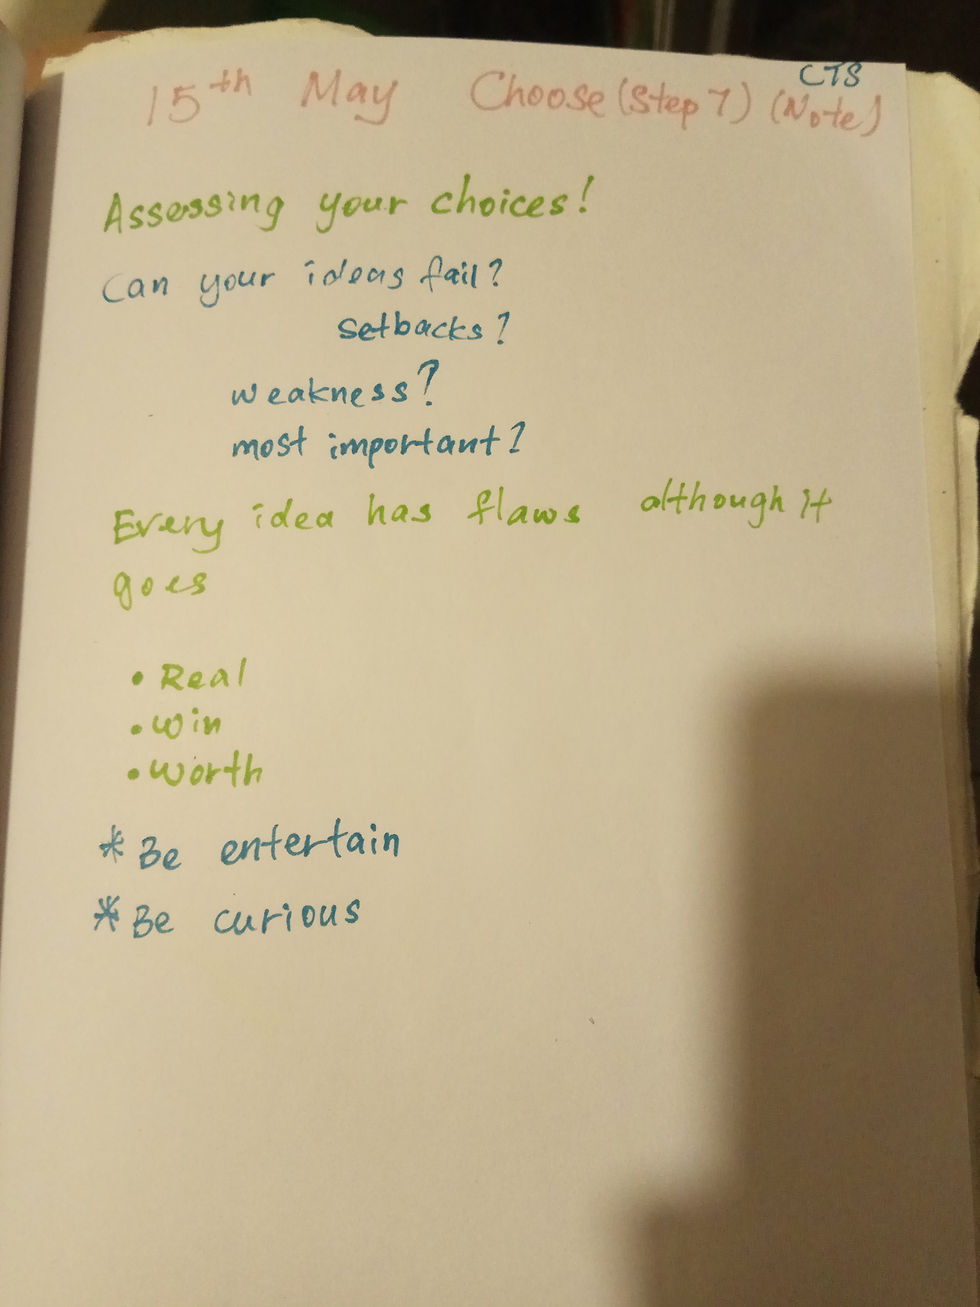 CTS
15th May Choose (Step 7) (Note)
Assessing your choices!
Can your ideas fail?
setbacks?
weakness?
most important?
Every idea has flaws although it
goes
• Real
• Win
• Worth
* Be entertain
* Be curious